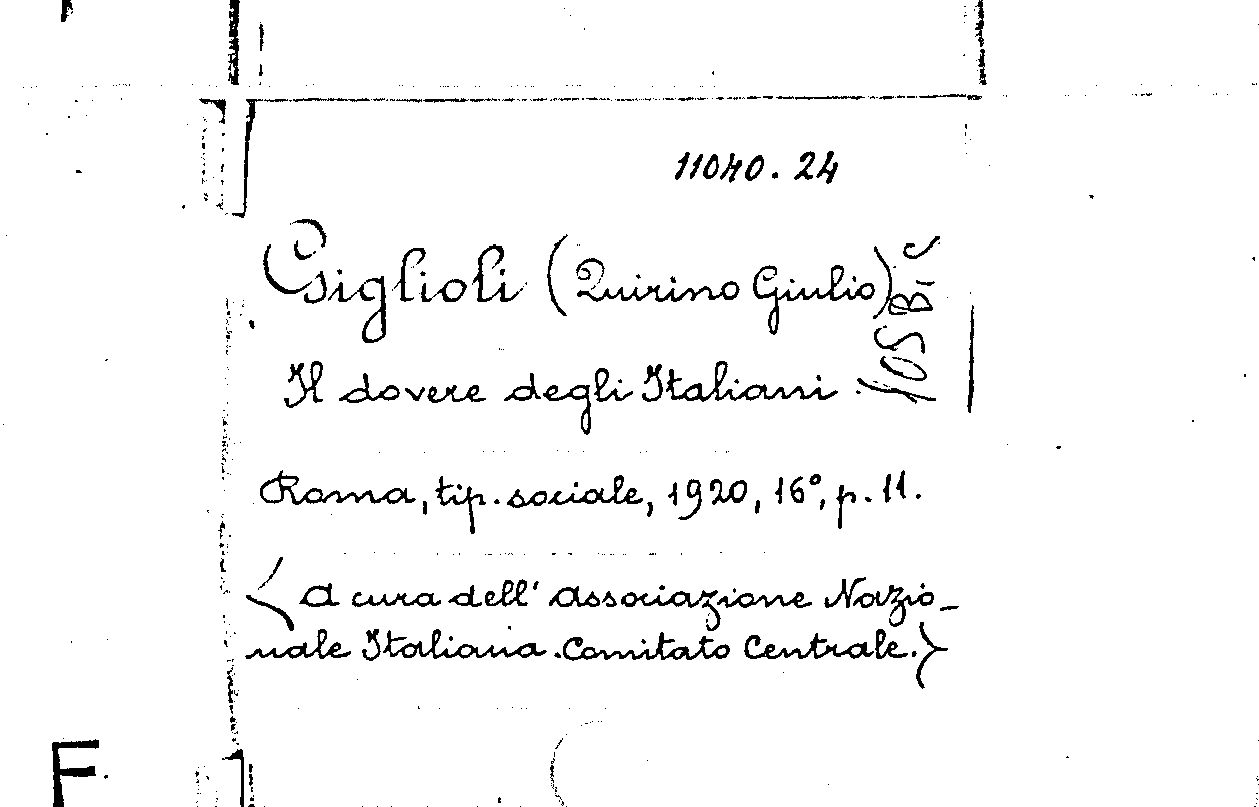 11040.24
Giglioli (Quirino Giulio)
105 B. C
Il dovere degli Italiani.
Roma, tip. sociale, 1920, 16°, p. 11.
< A cura dell' Associazione Nazio-
nale Italiana. Comitato Centrale. >
F